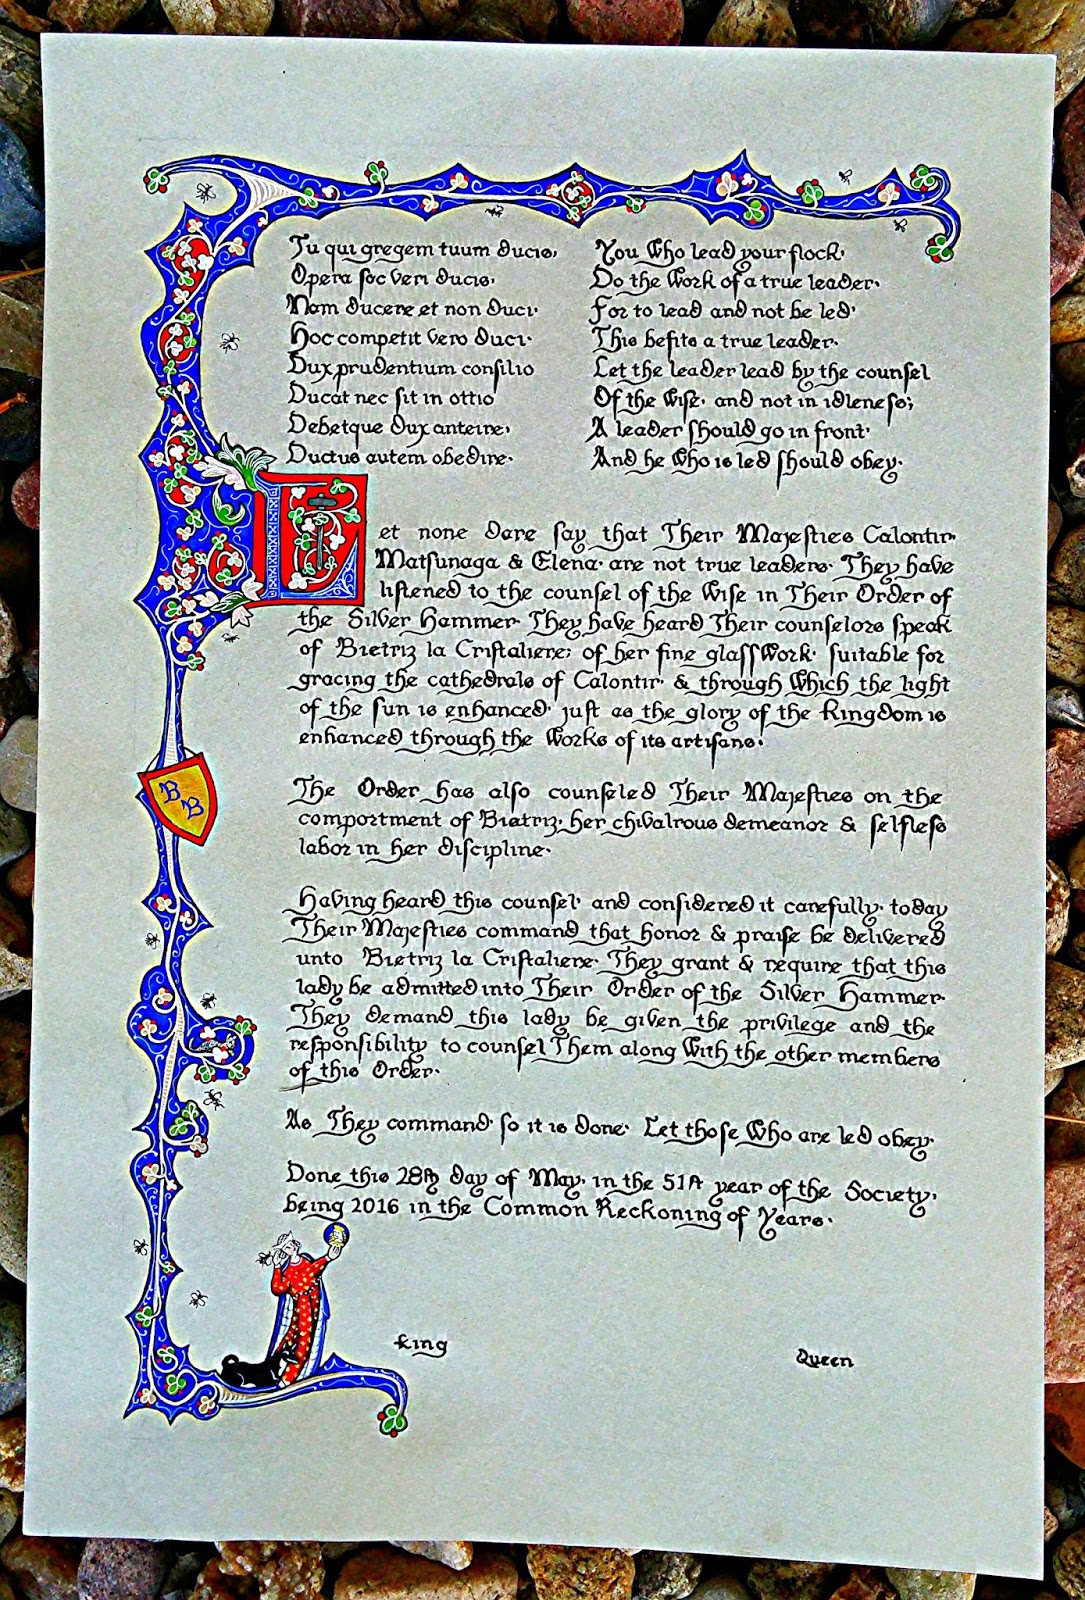 Tu qui gregem tuum ducis,
Opera foc veri ducis.
Nam ducere et non duci.
Hoc competit vero duci.
Dux prudentium consilio
Ducat nec sit in ottio
Debetque dux anteire,
Ductus autem obedire.
You Who lead your flock,
Do the Work of a true leader.
For to lead and not be led,
This befits a true leader.
Let the leader lead by the counsel
Of the Wise, and not in idleness;
A leader should go in front,
And he Who is led should obey.
Let none dare say that Their Majesties Calontir,
Matsunaga & Elena, are not true leaders. They have
listened to the counsel of the Wise in Their Order of
the Silver Hammer. They have heard Their counselors speak
of Bietriz la Cristaliere; of her fine glassWork, suitable for
gracing the cathedrals of Calontir, & through Which the light
of the sun is enhanced, just as the glory of the Kingdom is
enhanced through the Works of its artisans.
The Order has also counseled Their Majesties on the
comportment of Bietriz, her chivalrous demeanor & selfless
labor in her discipline.
Having heard this counsel, and considered it carefully, today
Their Majesties command that honor & praise be delivered
unto Bietriz la Cristaliere. They grant & require that this
lady be admitted into Their Order of the Silver Hammer.
They demand this lady be given the privilege and the
responsibility to counsel Them along With the other members
of this Order.
As They command, so it is done. Let those Who are led obey.
Done this 28th day of May, in the 51st year of the Society,
being 2016 in the Common Reckoning of Years.
B
B
King
Queen